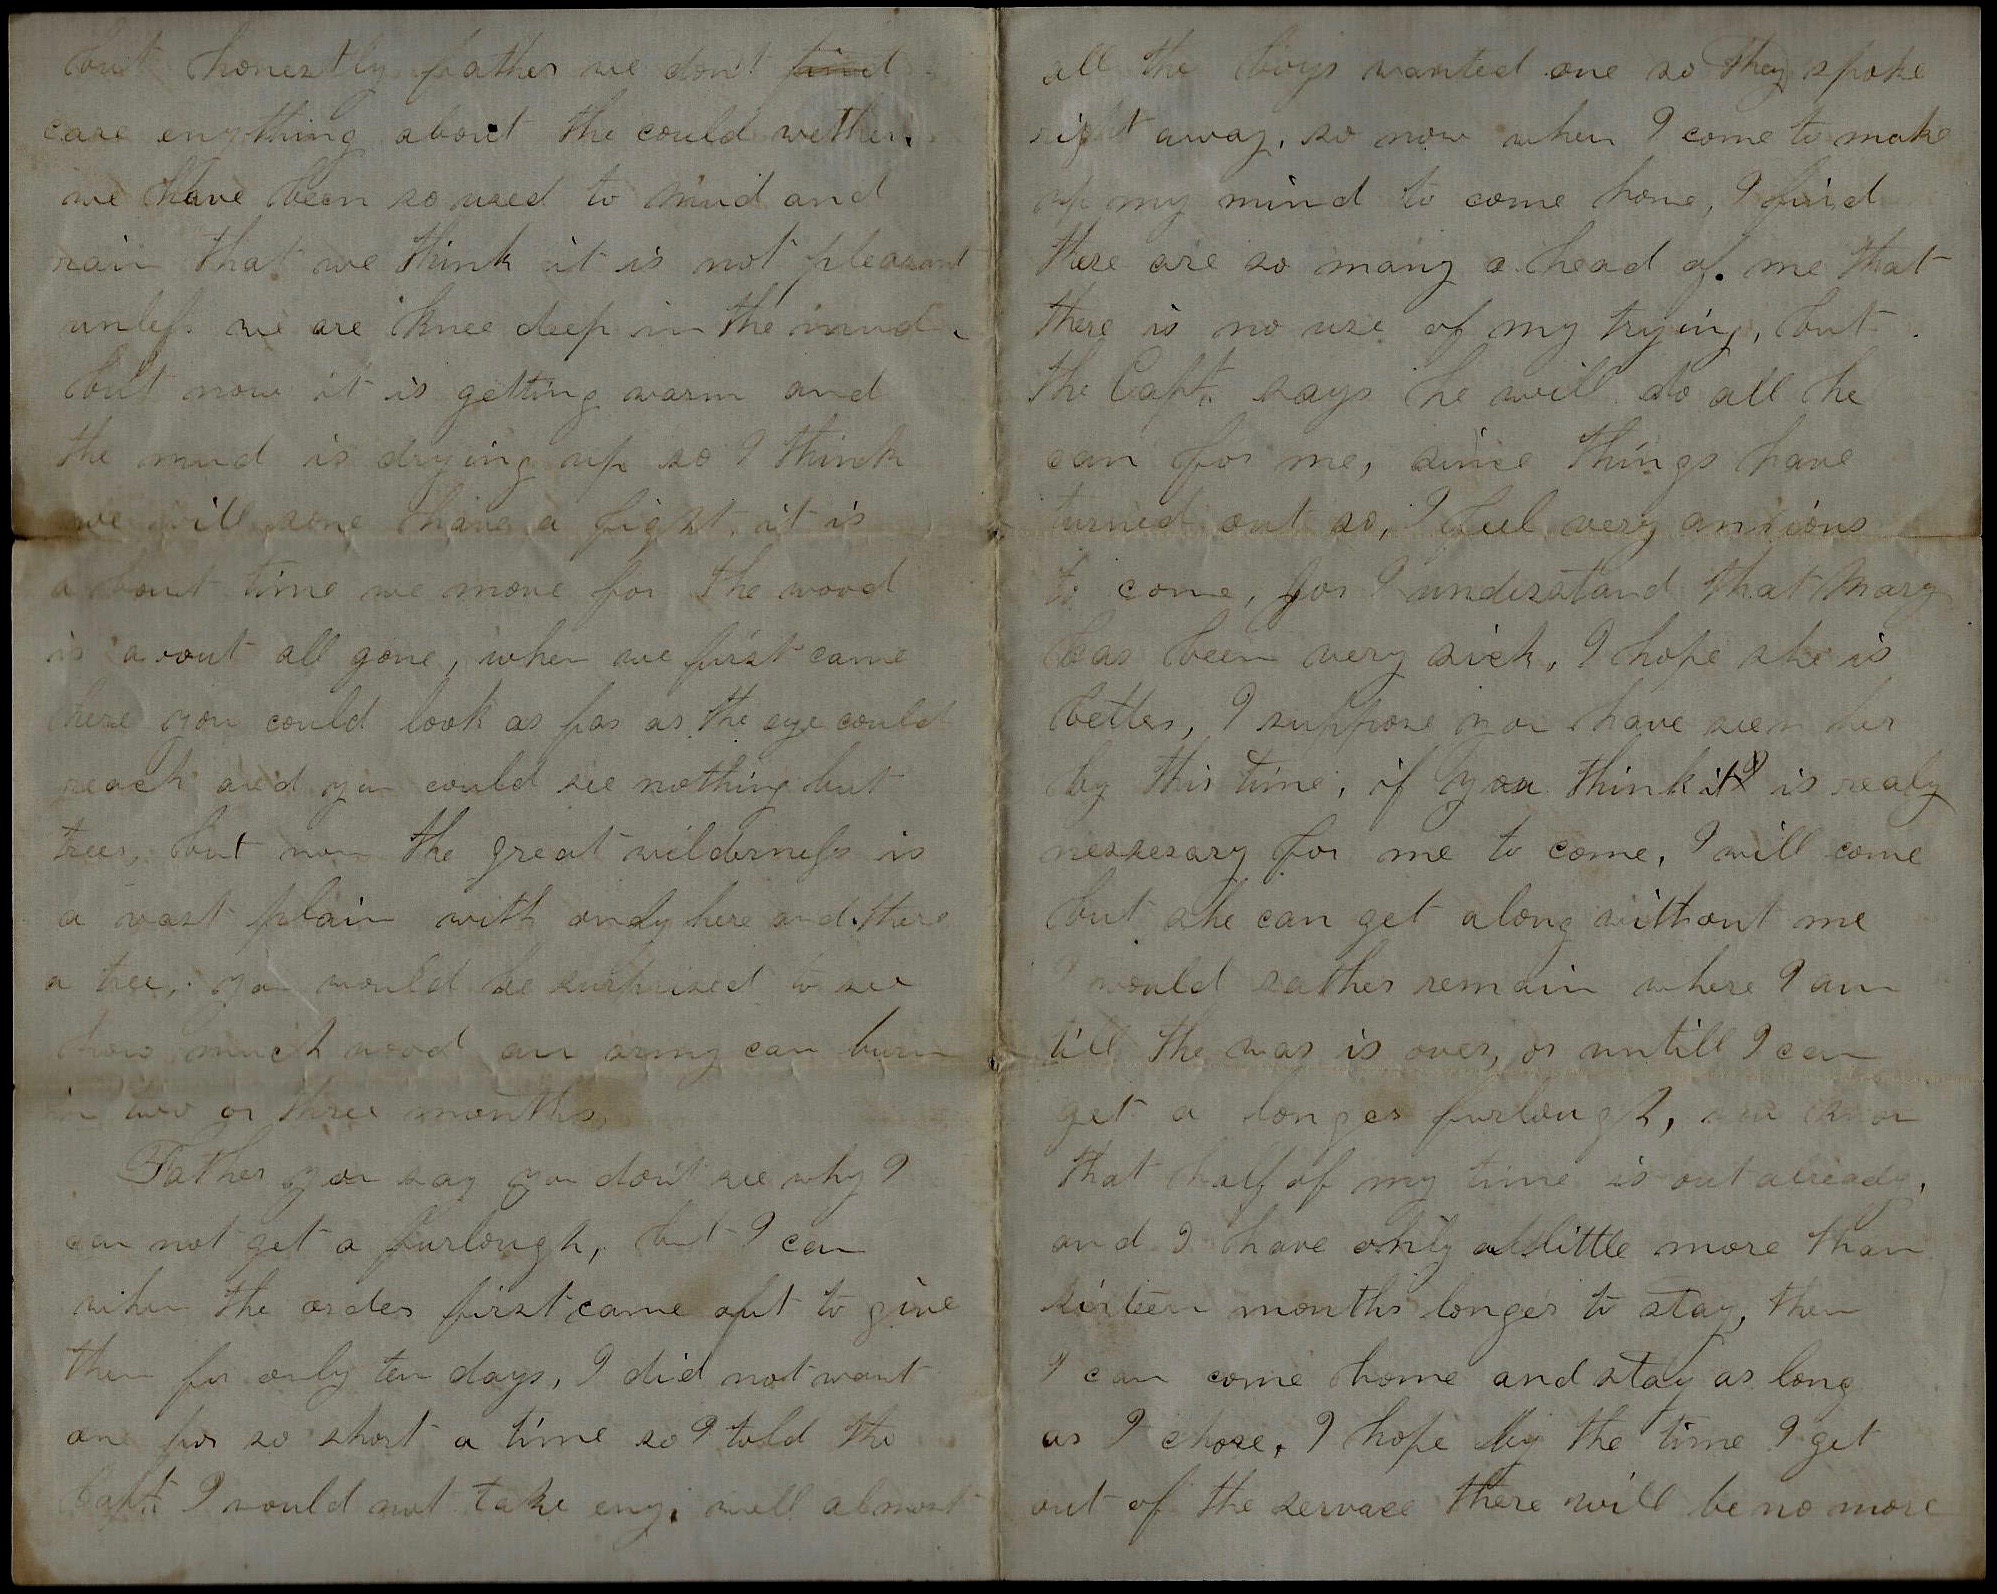 but honestly father we don't find
care enything about the could wether.
we have been so used to mud and
rain that we think it is not pleasant
unless we are knee deep in the mud.
but now it is getting warm and
the mud is drying up so I think
we will sone have a fight, it is
a bout time we move for the wood
is about all gone, when we first came
here you could look as far as the eye could
reach and you could see nothing but
trees, but now the great wilderness is
a vast plain with ondy here and there
a tree, you would be surprised to see
how much wood an army can burn
in two or three months.
Father you say you don't see why I
can not get a furlough, but I can
when the order first came out to give
them for only ten days, I did not want
one for so short a time so I told the
Capt. I would not take eny. well almost
all the boys wanted one so they spoke
right away, so now when I come to make
up my mind to come home, I find
there are so many a head of me that
there is no use of my trying, but
the Capt. says he will do all he
can for me, since things have
turned out so, I feel very anxious
to come, for I understand that Mary
has been very sick, I hope she is
better, I suppose you have seen her
by this time, if you think it is realy
nessesary for me to come, I will come
but she can get along without me
I would rather remain where I am
till the war is over, or untill I can
get a longer furlough, you know
that half of my time is out already,
and I have only a little more than
sixteen months longer to stay, then
I can come home and stay as long
as I chose, I hope by the time I get
out of the servace there will be no more